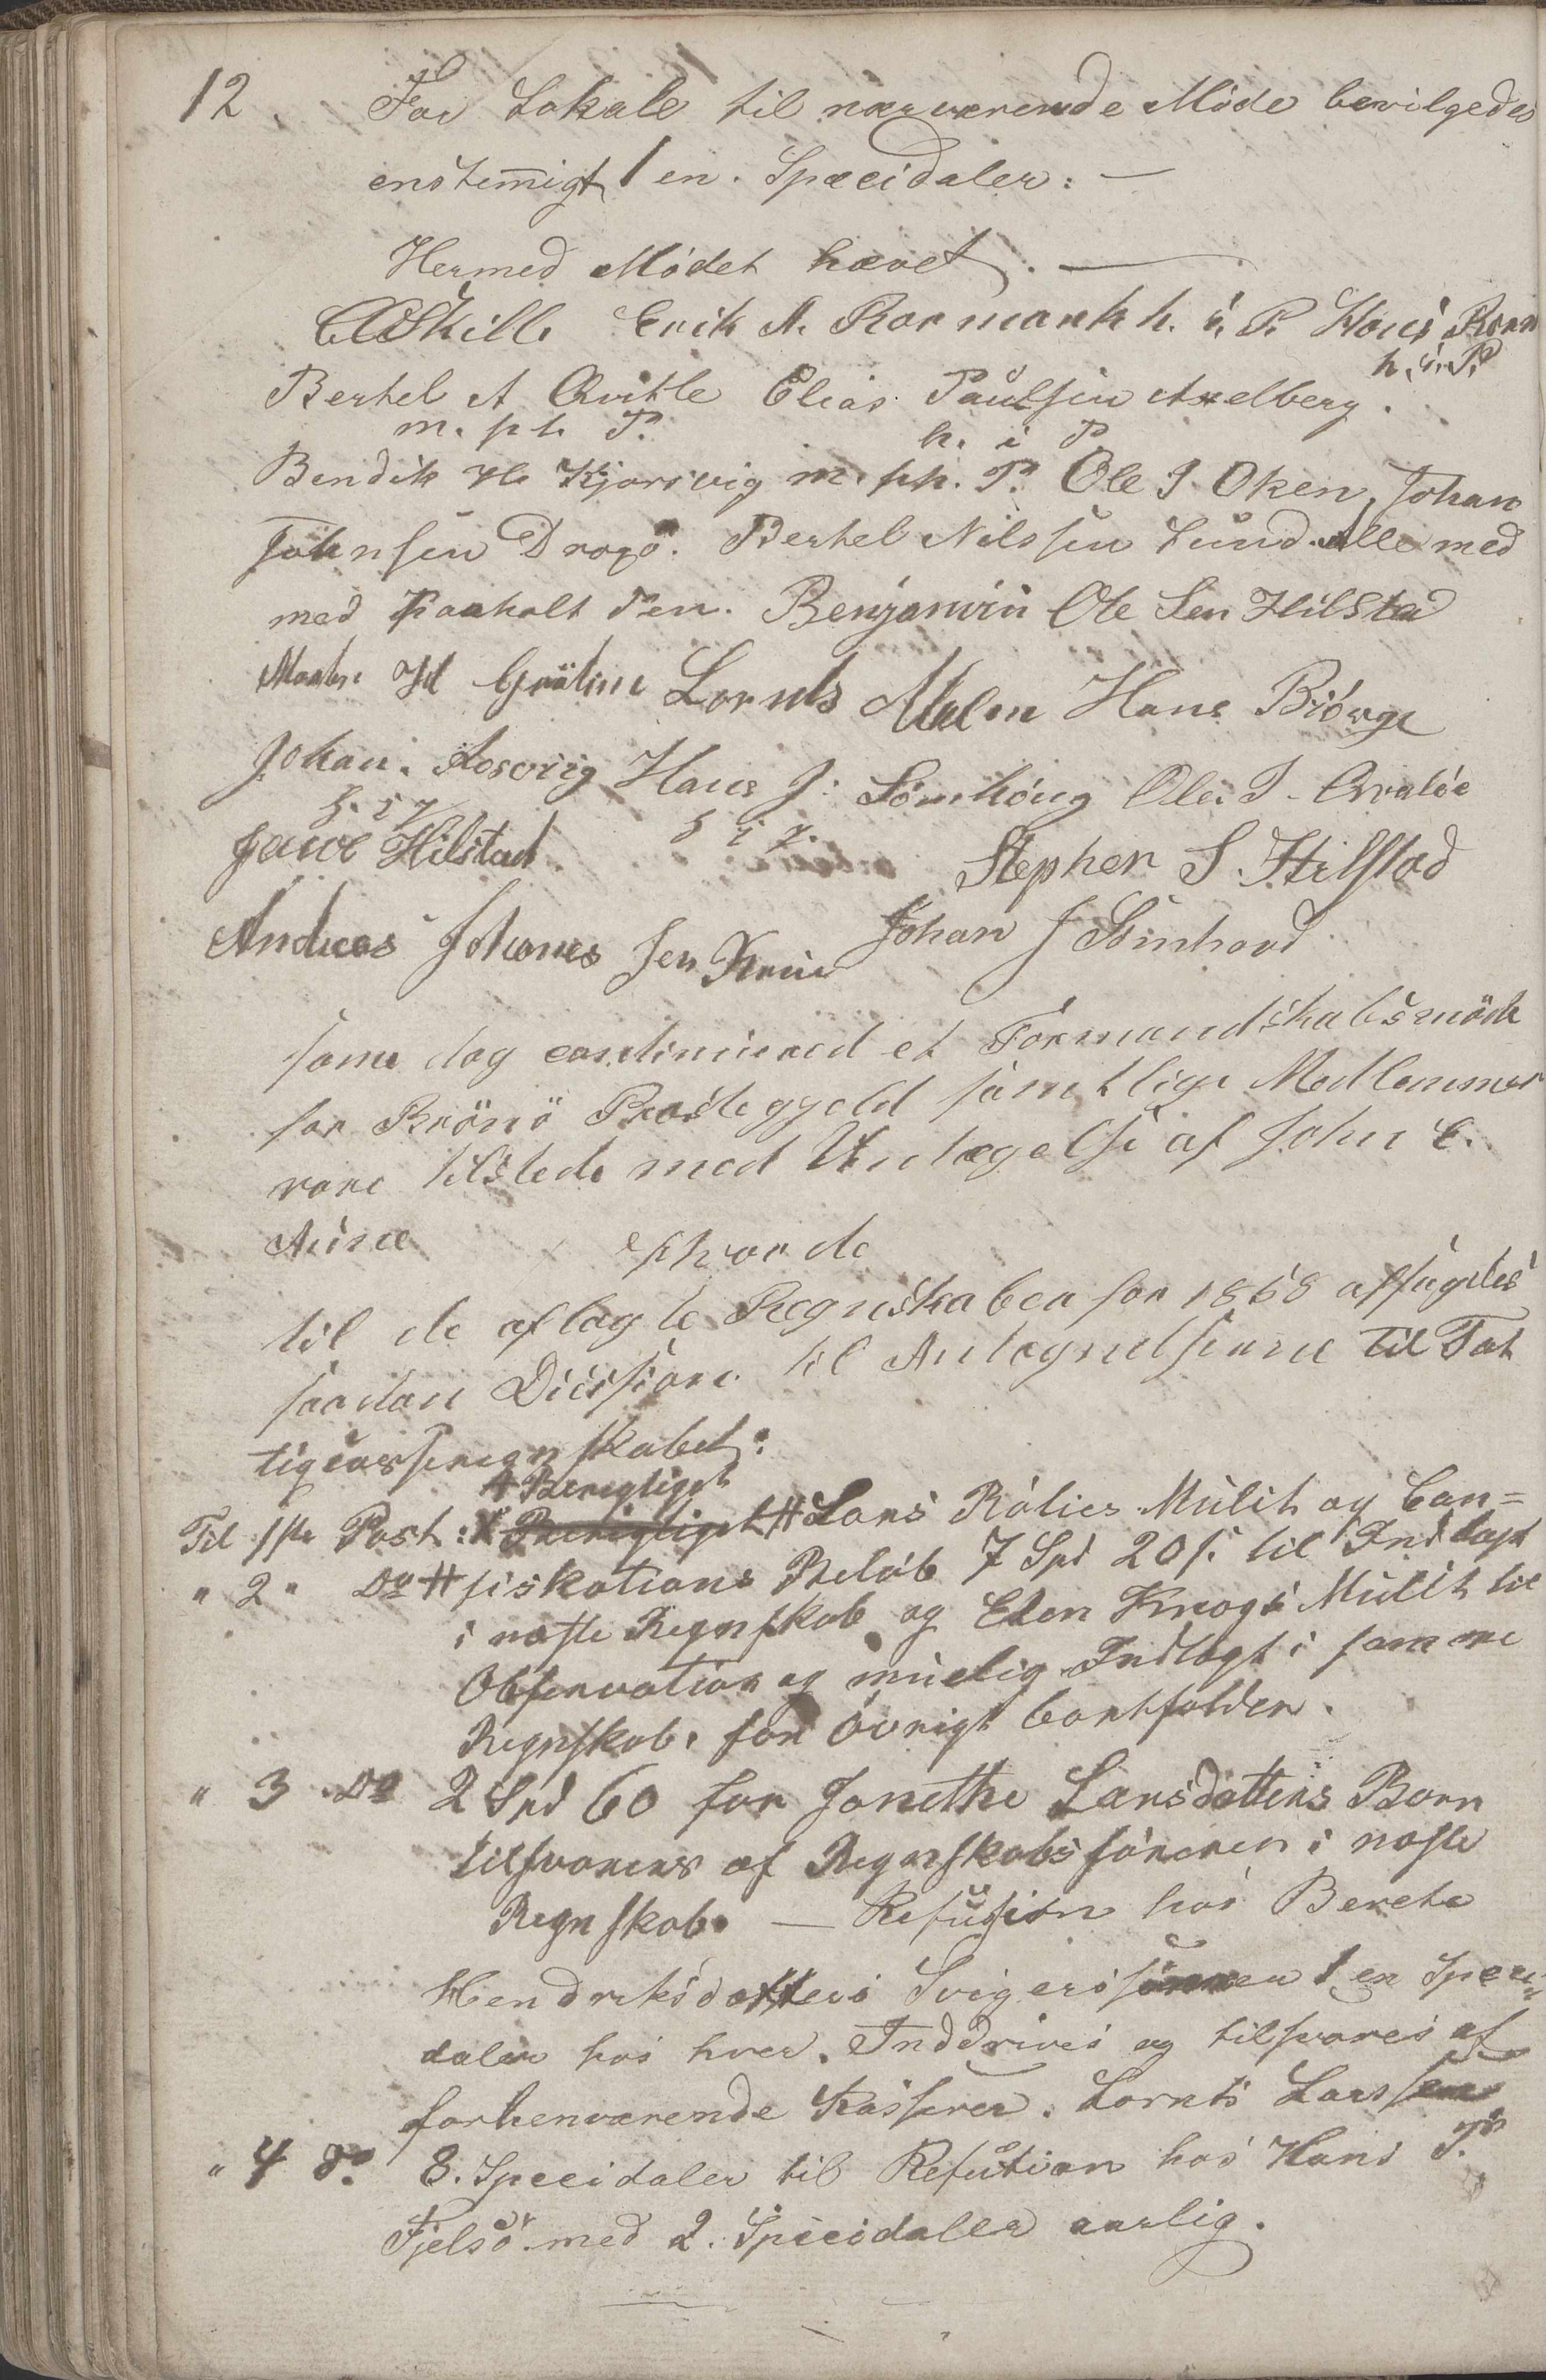 12. For Lokale til nærværende Møde bevilgedes
enstemigt 1 en. Specidaler: —
Hermed Mødet hævet. —
Erik A. Rormark h. i. P. Hans Roren
h. i. P.
Bertel A Qvitle Elias Paulsen Axelberg.
m. p h. P. h. i P
Bendik H. Kjørsvig m. ph. P. Ole J. Oken, Johan
Johnsen Dragø. Bertel Nilssen Sund. Alle med
med paaholt Pen. Benjamin Ole Sen Hilstad
Lornts Malm Hans Biørge
Johan. Hans J: Sømhóug Ole. J.
h. i P
Hilstad h i P. Stephen S. Hilstad
Andreas Johanes Sen Johan J Sömhovd
same dag continuered et Formandskabsmöde
for Brönö Prestegjeld samtlige Medlemmer
vare tilstede med Undtagelse af John E.
Aune
til de aflagte Regnskaber for 1868 affugedes
saadan til Antegnelserne til Fat
tigcasseregnskabet:
# Berigtiget
Til 1ste Post: # Lars Rölies Mulct og Con=
" 2 " Do # fiskations Beløb 7 Spd 20 s. til Indtægt
i næste Regnskab og Elen Krogs Mulct til
Observation og muelig Indtægt i samme
Regnskab. for øvrigt bortfalder.
" 3 Do 2 Spd 60 for Jonethe Larsdatters Barn
tilsvares af Regnskabsføreren i næste
Regnskab. — Refusion hos Berete
Hendriksdatters Svigersønner 1 en Speci=
daler hos hver. Inddrives og tilsvares af
forhenværende Kasserer. Lornts Larssen
" 4 do 8. Specidaler til Refution hos Hans P.
Fjelsø. med 2. Specidaler aarlig.